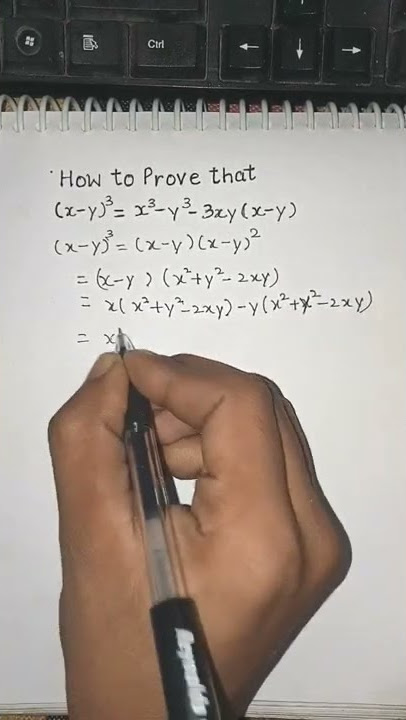 Ctrl
How to Prove that
(x-y)³ = x³-y³-3xy(x-y)
(x-y)³ = (x-y)(x-y)²
= (x-y) (x²+y²-2xy)
= x(x²+y²-2xy)-y(x²+y²-2xy)
= x